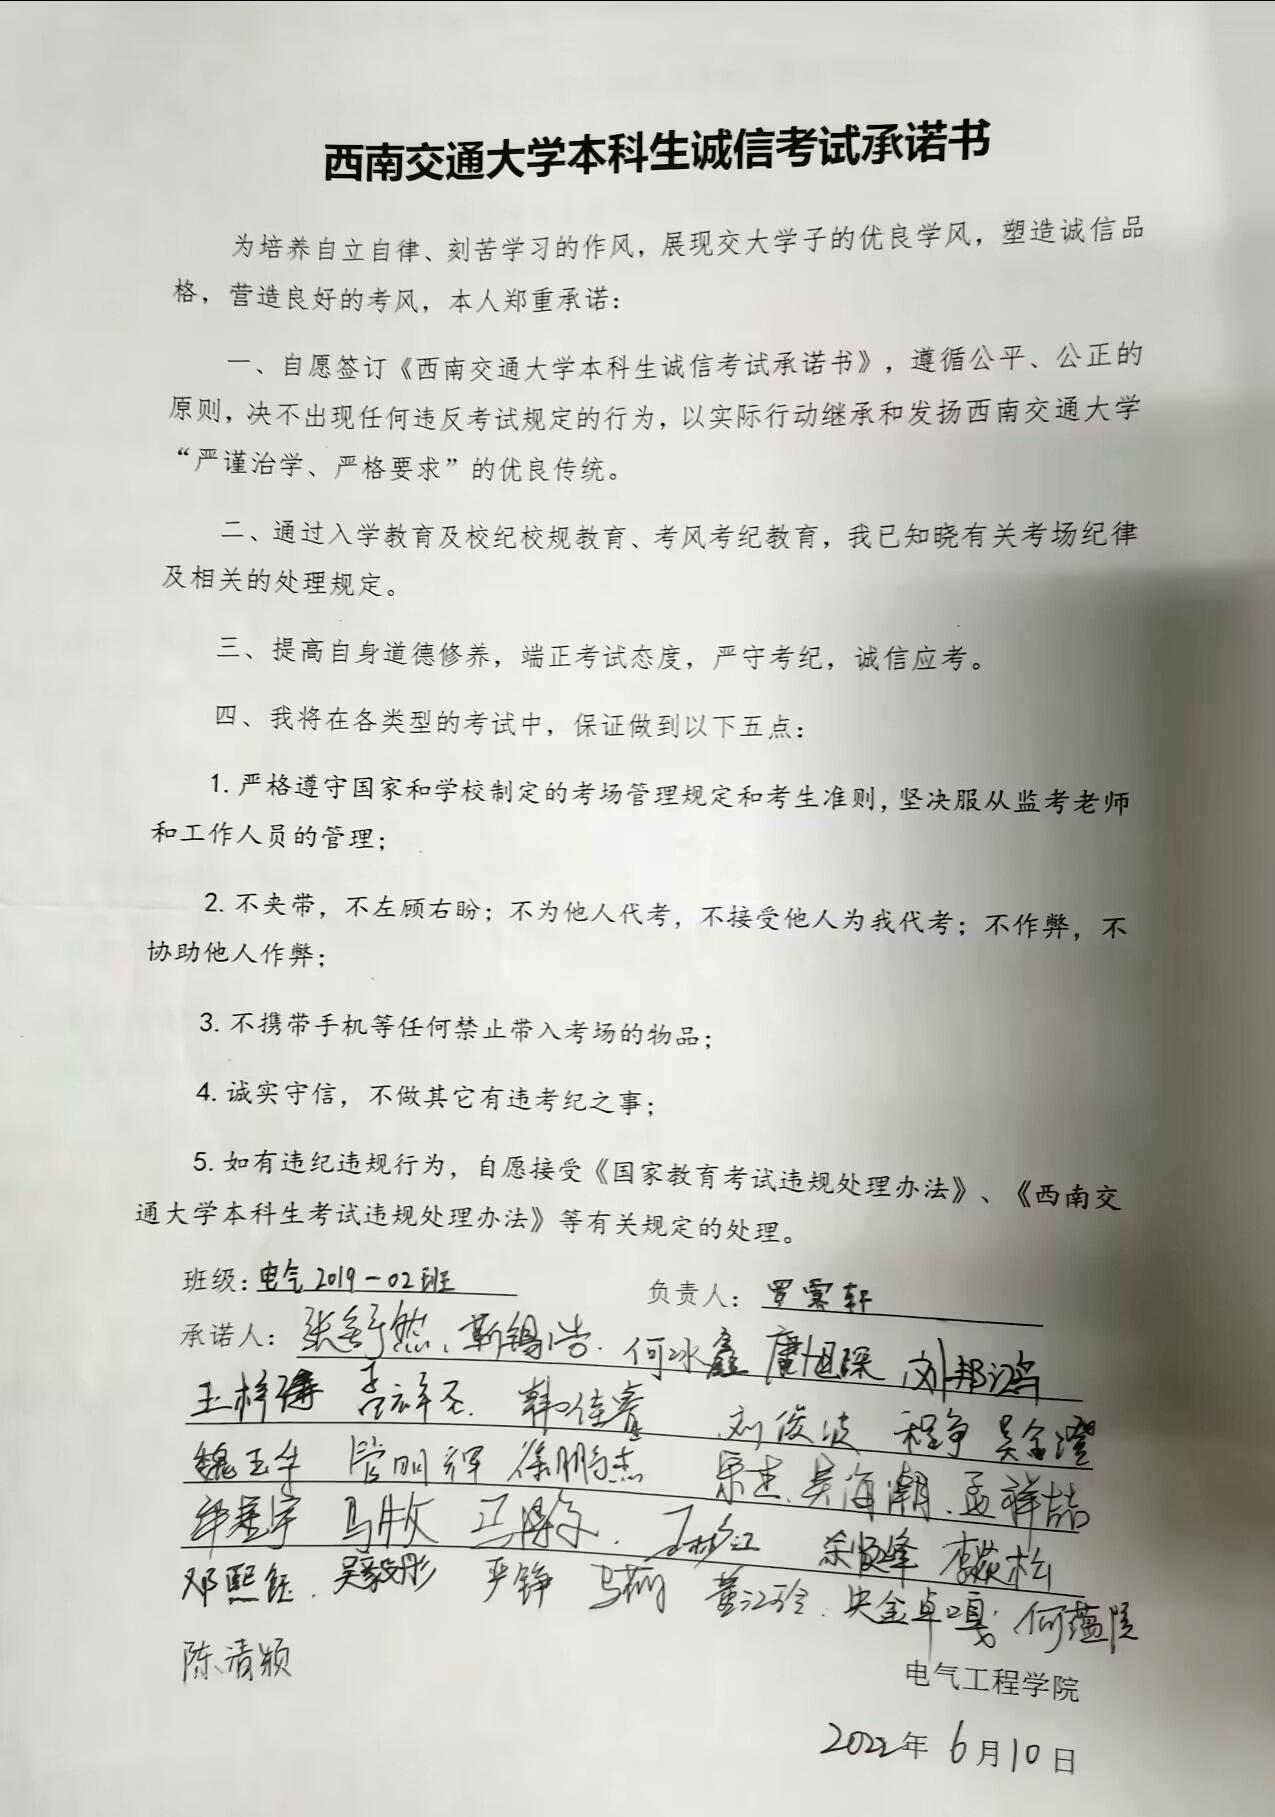 西南交通大学本科生诚信考试承诺书
为培养自立自律、刻苦学习的作风，展现交大学子的优良学风，塑造诚信品
格，营造良好的考风，本人郑重承诺：
一、自愿签订《西南交通大学本科生诚信考试承诺书》，遵循公平、公正的
原则，决不出现任何违反考试规定的行为，以实际行动继承和发扬西南交通大学
“严谨治学、严格要求”的优良传统。
二、通过入学教育及校纪校规教育、考风考纪教育，我已知晓有关考场纪律
及相关的处理规定。
三、提高自身道德修养，端正考试态度，严守考纪，诚信应考。
四、我将在各类型的考试中，保证做到以下五点：
1.严格遵守国家和学校制定的考场管理规定和考生准则，坚决服从监考老师
和工作人员的管理；
2.不夹带，不左顾右盼；不为他人代考，不接受他人为我代考；不作弊，不
协助他人作弊；
3.不携带手机等任何禁止带入考场的物品；
4.诚实守信，不做其它有违考纪之事；
5.如有违纪违规行为，自愿接受《国家教育考试违规处理办法》、《西南交
通大学本科生考试违规处理办法》等有关规定的处理。
班级：电气2019-02班 负责人：罗霄轩
承诺人：张舒然、靳锡浩. 何冰鑫 唐旭琛 刘邦鸿
韩佳睿 刘俊波 程争 吴金澄
魏玉华 管明辉 徐鹏杰 吴海潮. 孟祥喆
马牧 余顺峰
邓熙钰. 吴毅彤 严铮 马莉 董江玲. 央金卓嘎 何蕴陵
陈清颖
电气工程学院
2022年 6月10日